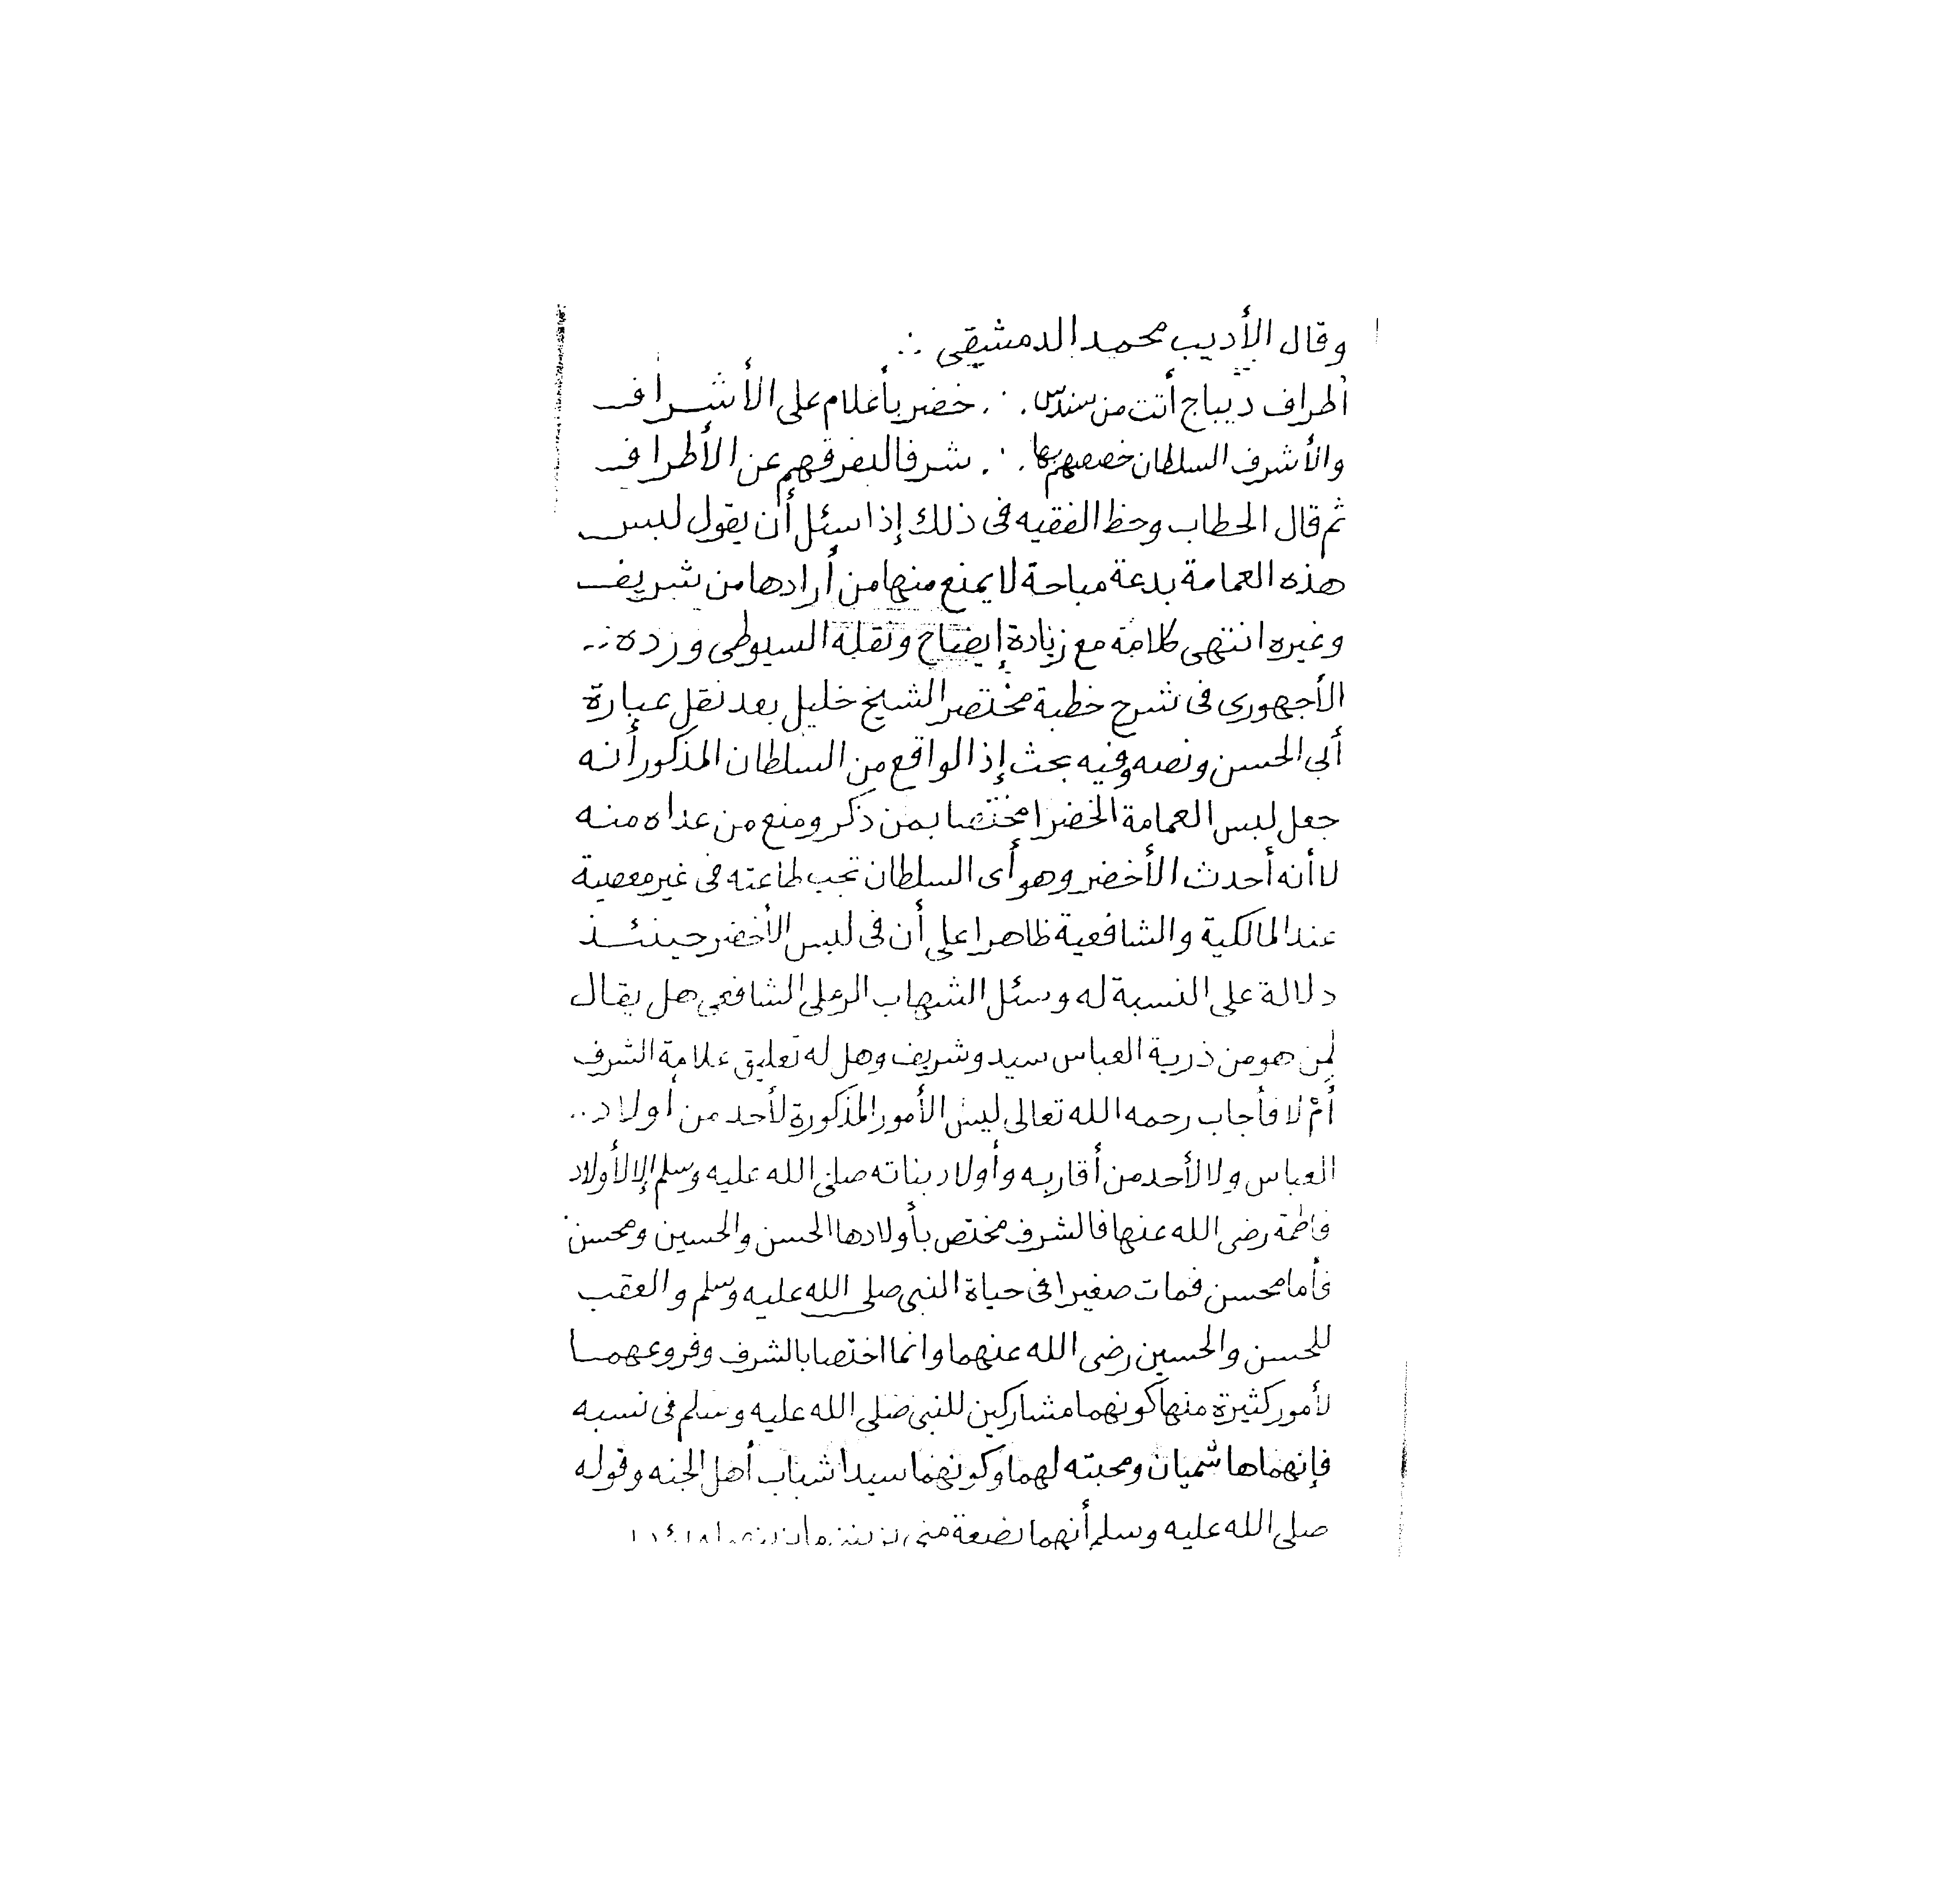 وقال الأديب محمد الدمشيقي ∴
أطراف ديباج أتت من سندس ∴ خضر بأعلام على الأشراف
والأشرف السلطان خصصهم بها ∴ شرفا ليفرقهم عن الأطراف
ثم قال الحطاب وحظ الفقيه فى ذلك إذا سئل أن يقول لبس
هذه العمامة بدعة مباحة لا يمنع منها من أرادها من شريف
وغيره انتهى كلامه مع زيادة إيضاح ونقله السيوطى ورده
الأجهورى فى شرح خطبة مختصر الشيخ خليل بعد نقل عبارة
أبى الحسن ونصه وفيه بحث إذ الواقع من السلطان المذكور أنه
جعل لبس العمامة الخضرا مختصا بمن ذكر ومنع من عداه منه
لا أنه أحدث الأخضر وهو أى السلطان تجب طاعته فى غير معصية
عند المالكية والشافعية ظاهرا على أن فى لبس الأخضر حينئذ
دلالة على النسبة له وسئل الشهاب الرملى الشافعى هل يقال
لمن هو من ذرية العباس سيد وشريف وهل له تعليق علامة الشرف
أم لا فأجاب رحمه الله تعالى ليس الأمور المذكورة لأحد من أولاد..
العباس ولا لأحد من أقاربه وأولاد بناته صلى الله عليه وسلم إلا لأولاد
فاطمة رضى الله عنها فالشرف مختص بأولادها الحسن والحسين ومحسن
فأما محسن فمات صغيرا فى حياة النبى صلى الله عليه وسلم والعقب
للحسن والحسين رضى الله عنهما وانما اختصا بالشرف وفروعهمــا
لأمور كثيرة منها كونهما مشاركين للنبى صلى الله عليه وسلم فى نسبه
فإنهما هاشميان ومحبته لهما وكونهما سيدا شباب أهل الجنه وقوله
صلى الله عليه وسلم أنهما بضعة منى